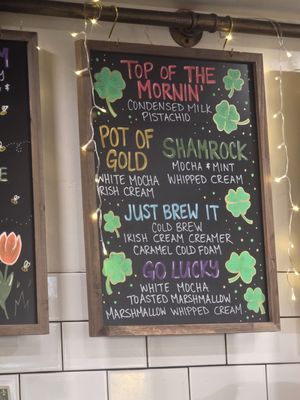 TOP OF THE
MORNIN'
CONDENSED MILK
PISTACHIO
POT OF
GOLD
WHITE MOCHA
IRISH CREAM
SHAMROCK
MOCHA & MINT
WHIPPED CREAM
JUST BREW IT
COLD BREW
IRISH CREAM CREAMER
CARAMEL COLD FOAM
GO LUCKY
WHITE MOCHA
TOASTED MARSHMALLOW
MARSHMALLOW WHIPPED CREAM